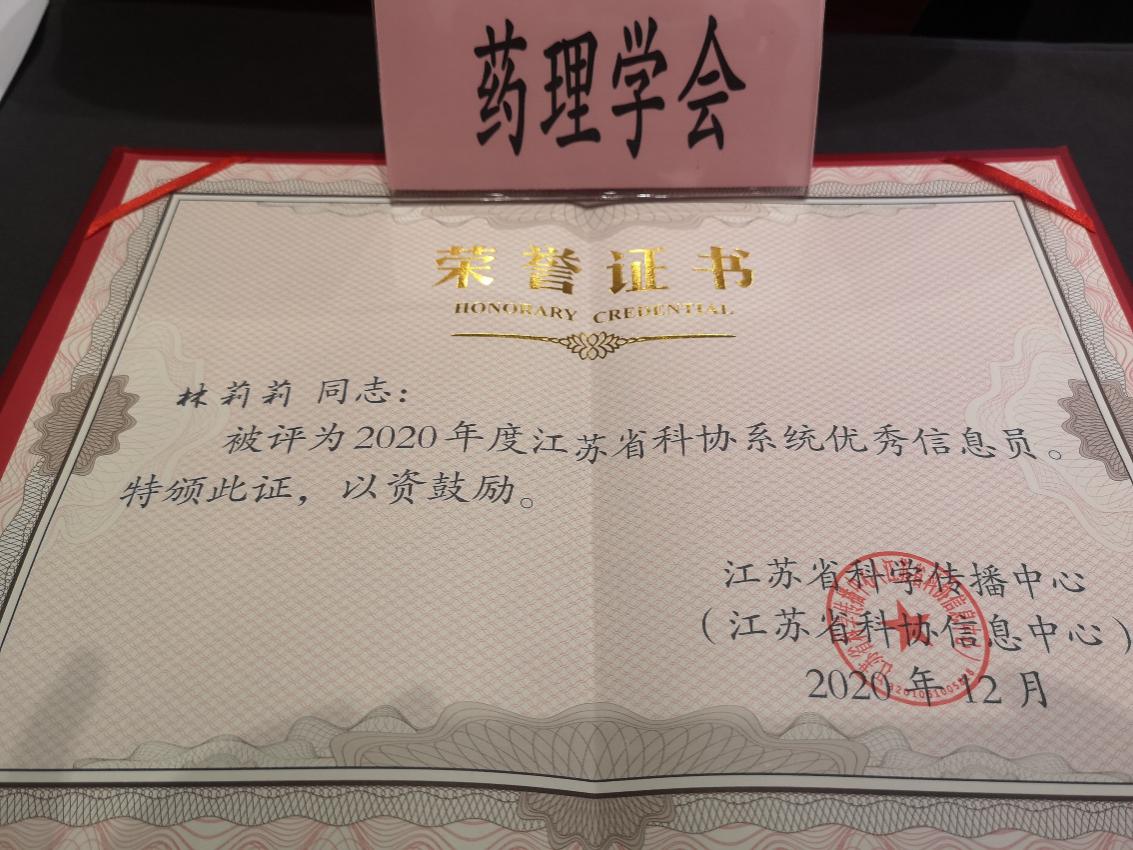 药理学会
荣誉证书
HONORARY CREDENTIAL
林莉莉 同志：
被评为2020年度江苏省科协系统优秀信息员。
特颁此证，以资鼓励。
江苏省科学传播中心
（江苏省科协信息中心）
2020年12月